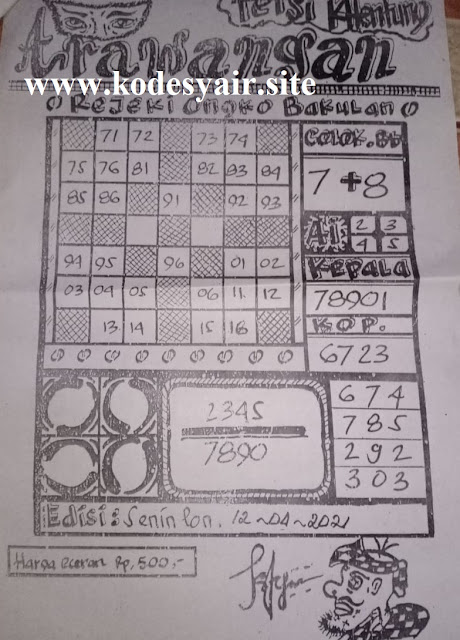 Terawangan
www.kodesyair.site
Rejeki Ongko Bakulan
71 72 73 74
Colok. BB
75 76 81 82 83 84
7+8
85 86 91 92 93
AI 2 3
4 5
94 95 96 01 02
KEPALA
03 04 05 06 11. 12
78901
13 14 15 16
KOP.
6723
2345
7890
674
785
292
303
Edisi: Senin Pon. 12~04~2021
Harga eceran Rp, 500,-